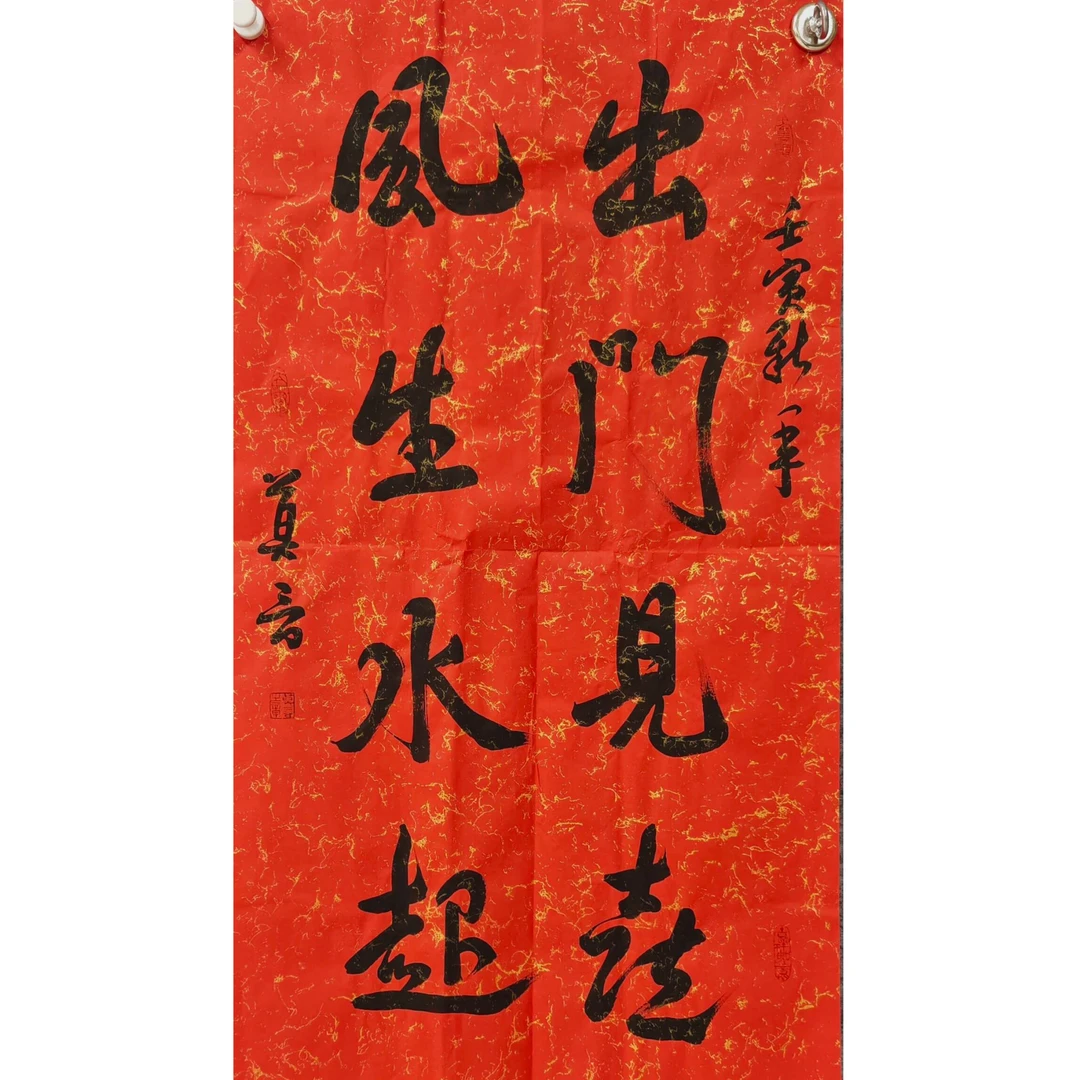 壬寅新年
出門見喜
風生水起
莫言